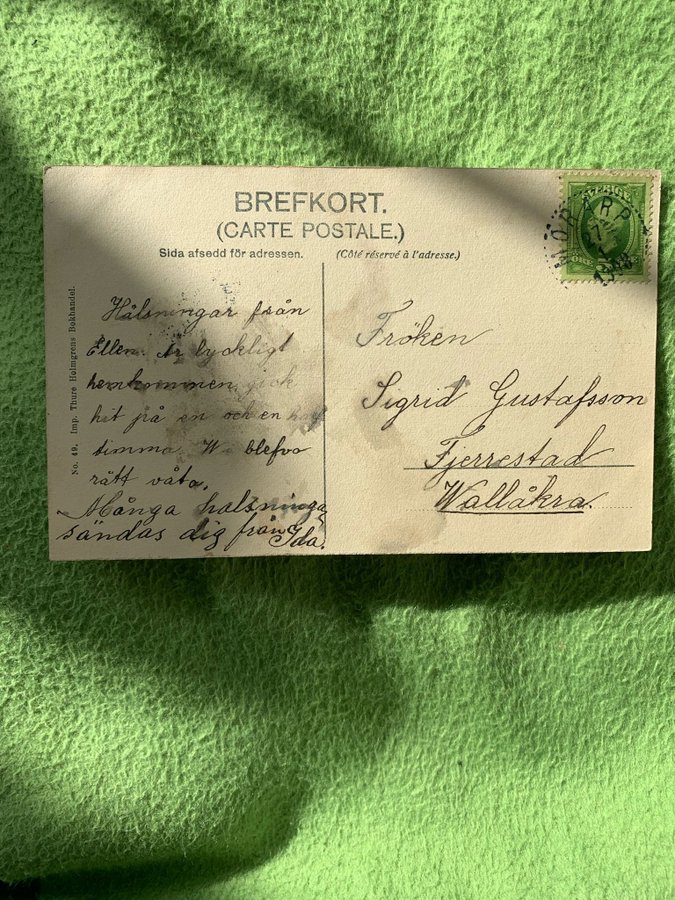 BREFKORT.
(CARTE POSTALE.)
Sida afsedd för adressen. (Côté réservé à l'adresse.)
No. 49. Imp. Thure Holmgrens Bokhandel.
Hälsningar från
Ellen. Är lyckligt
hemkommen, gick
hit på en och en half
timma. Wi blefvo
rätt våta.
Många halsningar
sändas dig från Ida.
Fröken
Sigrid Gustafsson
Fjerrestad
Wallåkra.
MÖRARP